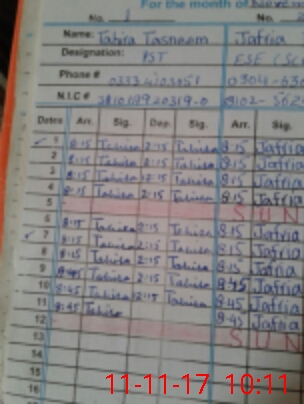 For the month of
No. 1 No.
Name: Tahira Tasneem Jafria
Designation: PST
Phone # 0304-630
N.I.C #
Dates Arr. Sig. Dep. Sig. Arr. Sig.
1 8:15 Tahira 2:15 Tahira 8:15 Jafria
2 8:15 Tahira 2:15 Tahira 8:15 Jafria
3 8:15 Tahira 12:15 Tahira 8:15 Jafria
4 8:15 Tahira 2:15 Tahira 8:15 Jafria
5 S U N
6 8:15 Tahira 2:15 Tahira 8:15 Jafria
7 8:15 Tahira 2:15 Tahira 8:15 Jafria
8 8:15 Tahira 2:15 Tahira 8:15 Jafria
9 8:45 Tahira 2:15 Tahira 8:45 Jafria
10 8:45 Tahira 12:15 Tahira 8:45 Jafria
11 8:45 Tahira 8:45 Jafria
12 S U N
13
14
15
16
11-11-17 10:11